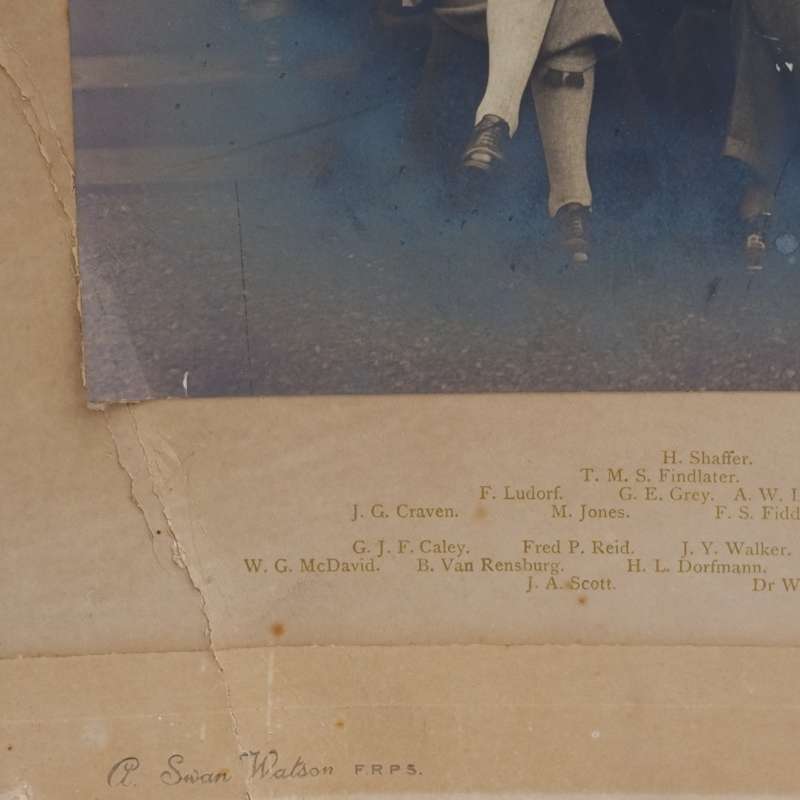 H. Shaffer.
T. M. S. Findlater.
F. Ludorf. G. E. Grey. A. W.
J. G. Craven. M. Jones. F. S.
G. J. F. Caley. Fred P. Reid. J. Y. Walker.
W. G. McDavid. B. Van Rensburg. H. L. Dorfmann.
J. A. Scott. Dr W
A. Swan Watson F.R.P.S.